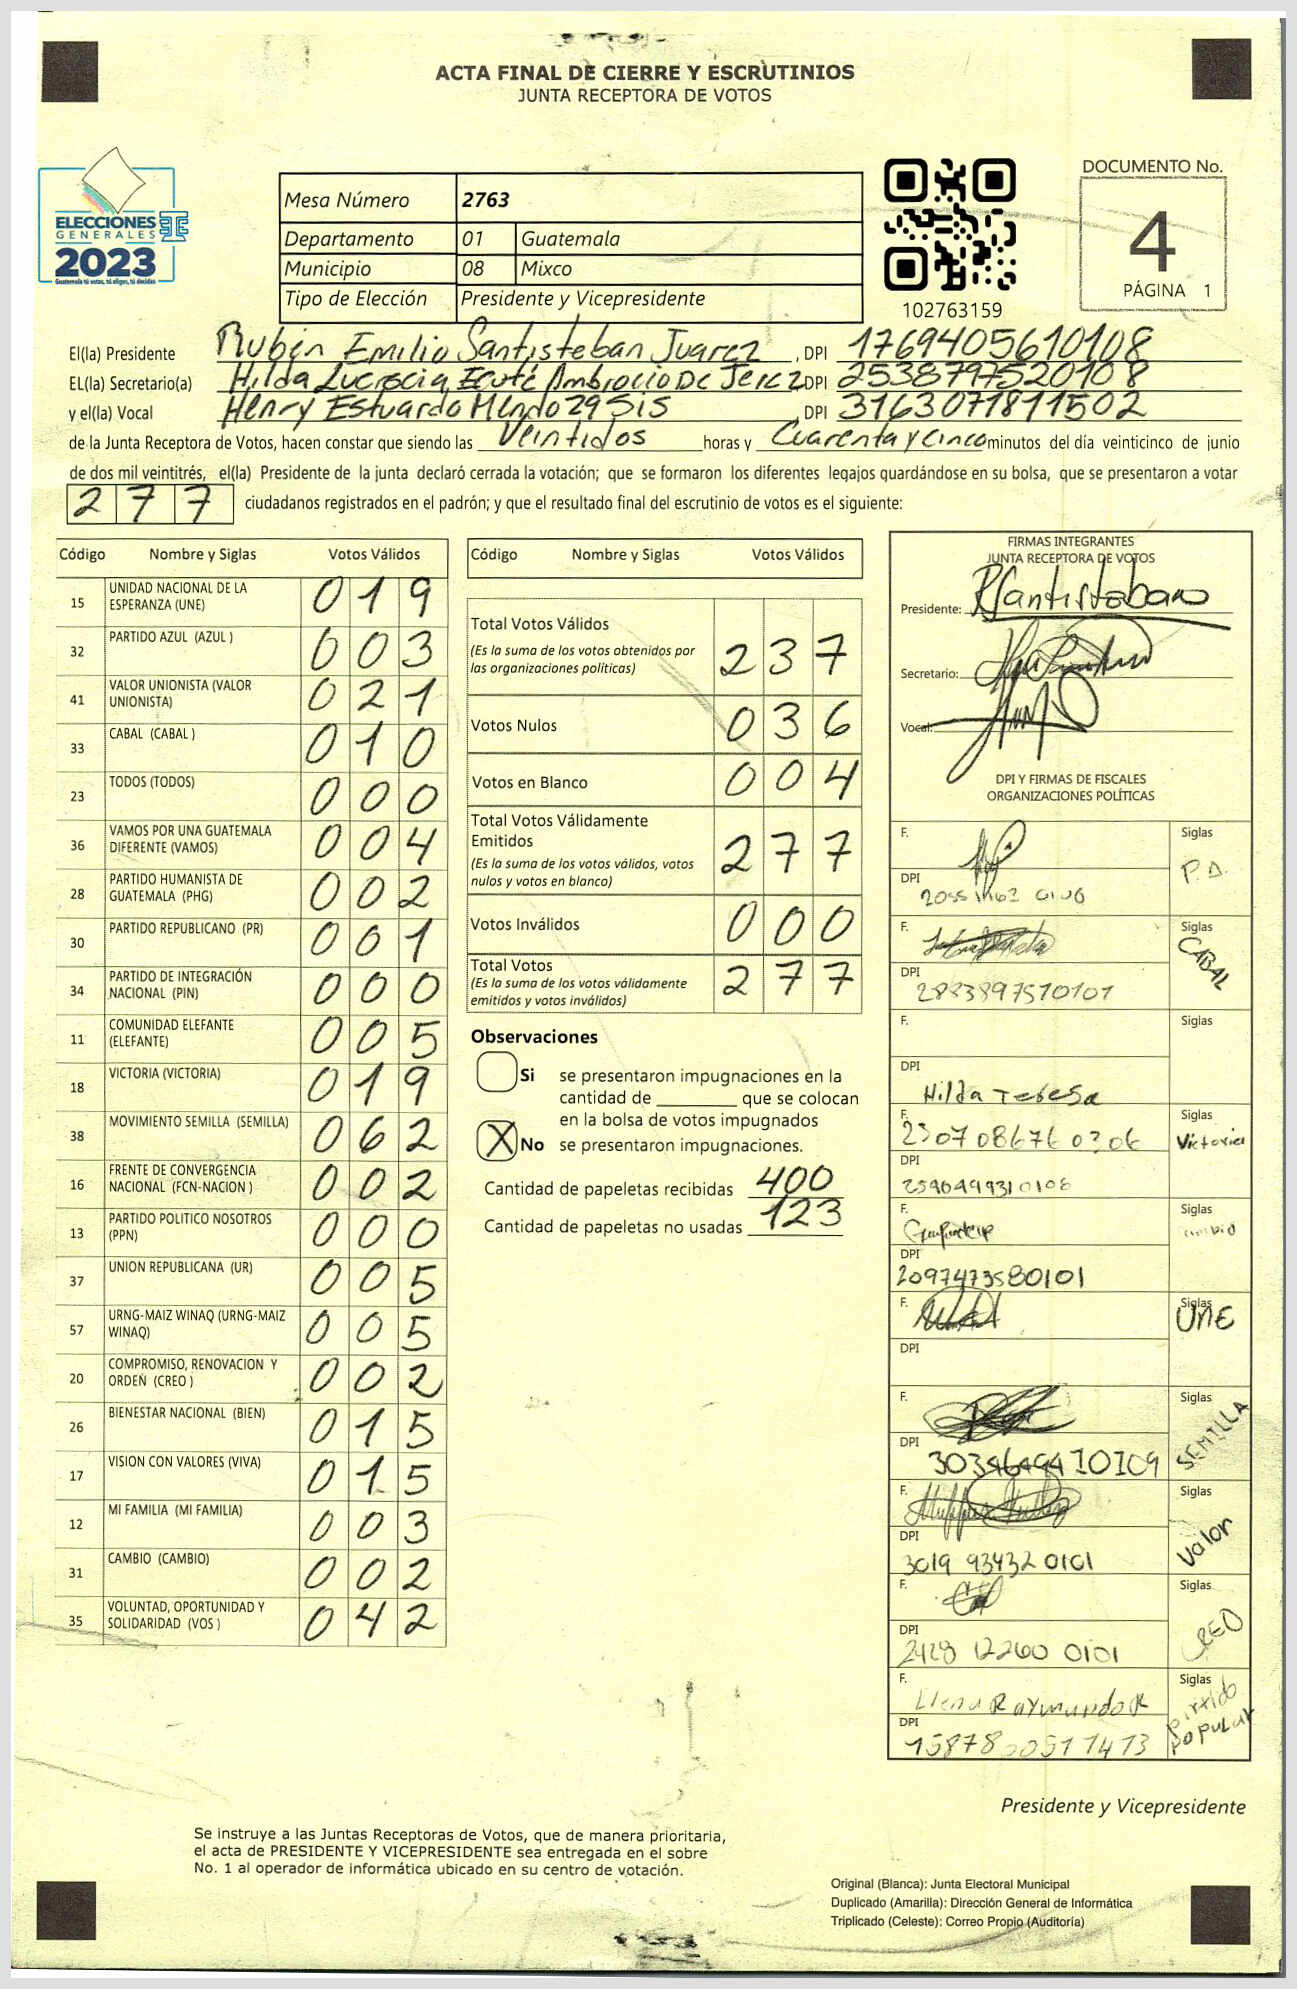 ACTA FINAL DE CIERRE Y ESCRUTINIOS
JUNTA RECEPTORA DE VOTOS
ELECCIONES
GENERALES
2023
Guatemala tú votas, tú eliges, tú decides
Mesa Número 2763
Departamento 01 Guatemala
Municipio 08 Mixco
Tipo de Elección Presidente y Vicepresidente
102763159
DOCUMENTO No.
4
PÁGINA 1
El(la) Presidente Rubén Emilio Santisteban Juarez, DPI 1769405610108
EL(la) Secretario(a) Hilda Lucrecia Ecuté Ambrocio De Jerez DPI 2538797520108
y el(la) Vocal Henry Estuardo Mendoza Sis, DPI 3163071811502
de la Junta Receptora de Votos, hacen constar que siendo las Veintidos horas y Cuarenta y cinco minutos del día veinticinco de junio
de dos mil veintitrés, el(la) Presidente de la junta declaró cerrada la votación; que se formaron los diferentes legajos quardándose en su bolsa, que se presentaron a votar
277 ciudadanos registrados en el padrón; y que el resultado final del escrutinio de votos es el siguiente:
Código Nombre y Siglas Votos Válidos
15 UNIDAD NACIONAL DE LA ESPERANZA (UNE) 019
32 PARTIDO AZUL (AZUL ) 003
41 VALOR UNIONISTA (VALOR UNIONISTA) 021
33 CABAL (CABAL ) 010
23 TODOS (TODOS) 000
36 VAMOS POR UNA GUATEMALA DIFERENTE (VAMOS) 004
28 PARTIDO HUMANISTA DE GUATEMALA (PHG) 002
30 PARTIDO REPUBLICANO (PR) 001
34 PARTIDO DE INTEGRACIÓN NACIONAL (PIN) 000
11 COMUNIDAD ELEFANTE (ELEFANTE) 005
18 VICTORIA (VICTORIA) 019
38 MOVIMIENTO SEMILLA (SEMILLA) 062
16 FRENTE DE CONVERGENCIA NACIONAL (FCN-NACION ) 002
13 PARTIDO POLITICO NOSOTROS (PPN) 000
37 UNION REPUBLICANA (UR) 005
57 URNG-MAIZ WINAQ (URNG-MAIZ WINAQ) 005
20 COMPROMISO, RENOVACION Y ORDEN (CREO ) 002
26 BIENESTAR NACIONAL (BIEN) 015
17 VISION CON VALORES (VIVA) 015
12 MI FAMILIA (MI FAMILIA) 003
31 CAMBIO (CAMBIO) 002
35 VOLUNTAD, OPORTUNIDAD Y SOLIDARIDAD (VOS ) 042
Código Nombre y Siglas Votos Válidos
Total Votos Válidos 237
(Es la suma de los votos obtenidos por
las organizaciones políticas)
Votos Nulos 036
Votos en Blanco 004
Total Votos Válidamente
Emitidos 277
(Es la suma de los votos válidos, votos
nulos y votos en blanco)
Votos Inválidos 000
Total Votos 277
(Es la suma de los votos válidamente
emitidos y votos inválidos)
Observaciones
Si se presentaron impugnaciones en la
cantidad de ________ que se colocan
en la bolsa de votos impugnados
X No se presentaron impugnaciones.
Cantidad de papeletas recibidas 400
Cantidad de papeletas no usadas 123
FIRMAS INTEGRANTES
JUNTA RECEPTORA DE VOTOS
Presidente: RSantisteban
Secretario:
Vocal:
DPI Y FIRMAS DE FISCALES
ORGANIZACIONES POLÍTICAS
F. Siglas P.A.
DPI
F. Siglas CABAL
DPI 2883897510101
F. Siglas
DPI Hilda Teresa
F. 2307086760306 Siglas Victoria
DPI 2590499310108
F. Siglas
DPI 2097473580101
F. Siglas UNE
DPI
F. Siglas SEMILLA
DPI 3034649410109
F. Siglas Valor
DPI 3019 93432 0101
F. Siglas CREO
DPI 2428 12260 0101
F. Raymundo Siglas partido popular
DPI
Presidente y Vicepresidente
Se instruye a las Juntas Receptoras de Votos, que de manera prioritaria,
el acta de PRESIDENTE Y VICEPRESIDENTE sea entregada en el sobre
No. 1 al operador de informática ubicado en su centro de votación.
Original (Blanca): Junta Electoral Municipal
Duplicado (Amarilla): Dirección General de Informática
Triplicado (Celeste): Correo Propio (Auditoría)